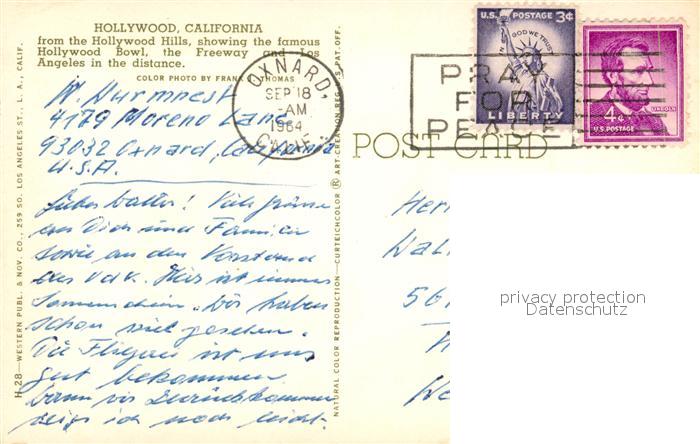 HOLLYWOOD, CALIFORNIA
from the Hollywood Hills, showing the famous
Hollywood Bowl, the Freeway and Los
Angeles in the distance.
COLOR PHOTO BY FRANK THOMAS
W. Durmnest
4179 Moreno Lane
93032 Oxnard, California
U.S.A.
Lieber Walter! Viele Grüsse
an Dich und Familie
sowie an den Vorstand
des VdK. Hier ist immer
Sonnenschein. Wir haben
schon viel gesehen.
Die Fliegerei ist uns
gut bekommen.
Wann wir zurückkommen
weiss ich noch nicht.
H-28—WESTERN PUBL. & NOV. CO., 259 SO. LOS ANGELES ST., L. A., CALIF.
NATURAL COLOR REPRODUCTION—CURTEICHCOLOR ® ART-CREATION REG. U.S. PAT. OFF.
OXNARD,
SEP 18
-AM
1964
CALIF.
PRAY
FOR
PEACE
U.S. POSTAGE 3¢
IN GOD WE TRUST
LIBERTY
LINCOLN
4¢
U.S. POSTAGE
POST CARD
Her
Wal
56
privacy protection
Datenschutz